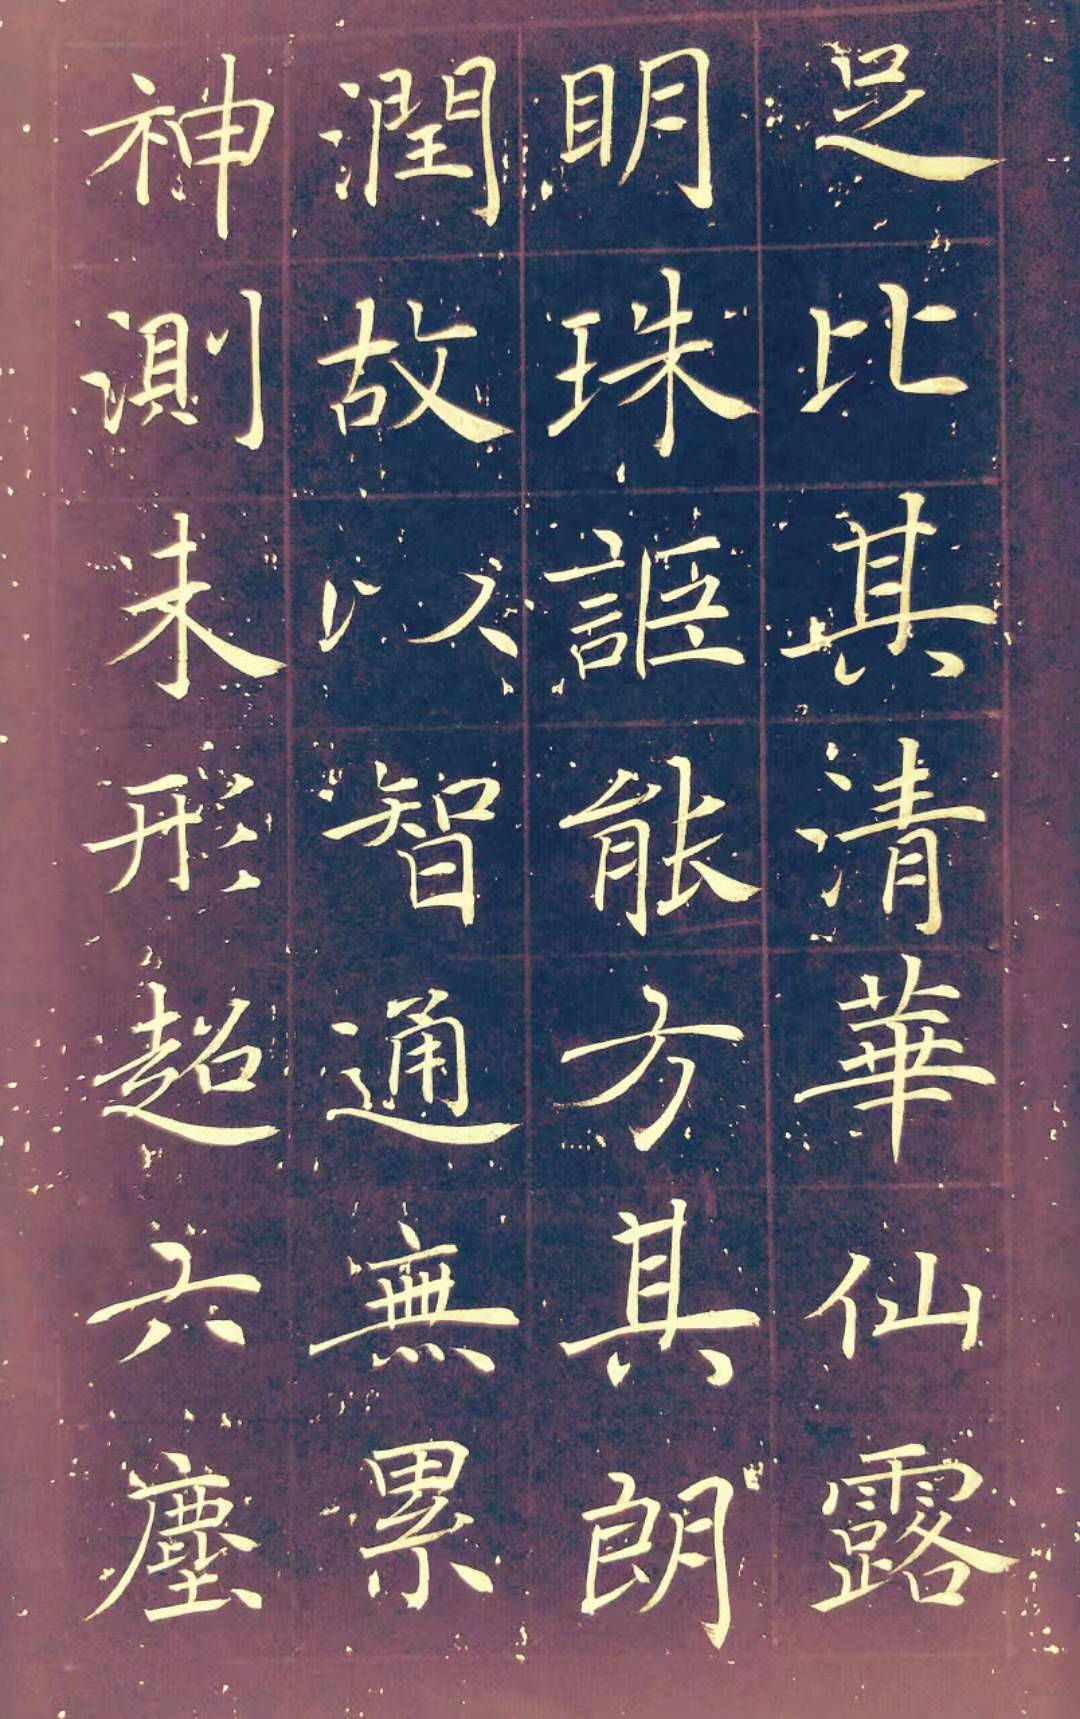 足比其清華仙露
明珠詎能方其朗
潤故以智通無累
神測未形超六塵